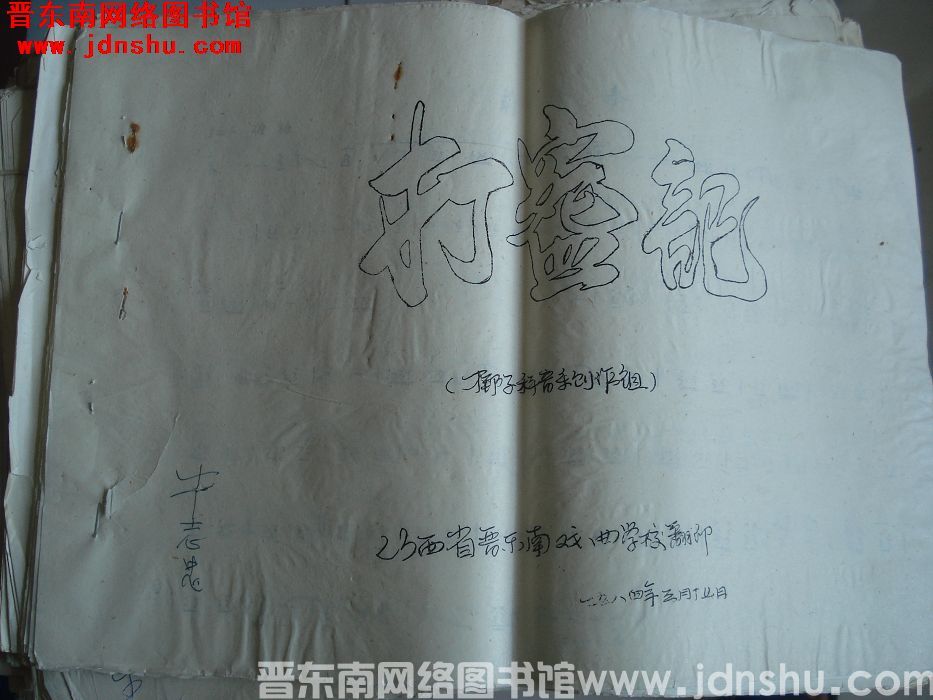 晋东南网络图书馆
www.jdnshu.com
打銮记
(梆子科音乐创作组)
山西省晋东南戏曲学校翻印
一九八四年三月十五日
晋东南网络图书馆 www.jdnshu.com